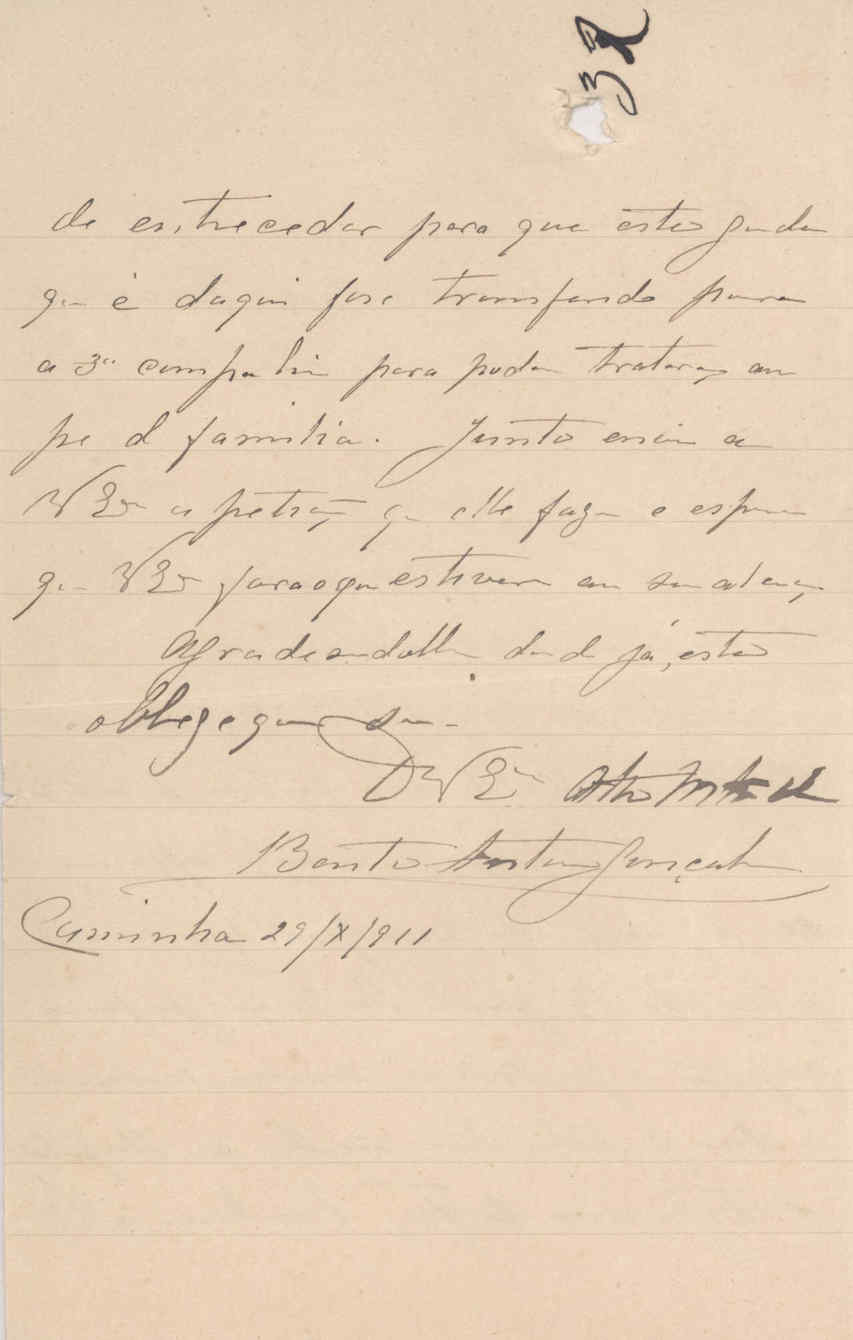 32
de entreceder para que este guarda
que é daqui fose transferido para
a 3ª companhia para poder tratarse em
pe d familia. Junto envio a
V Exª a petição que elle faz e espero
que V Exª fara o que estiver em seu alcance
Agradecendolhe desde já, este
obblege que sou
D V Exª Attº
Bento Antonio Gonçalves
Caminha 29/X/911